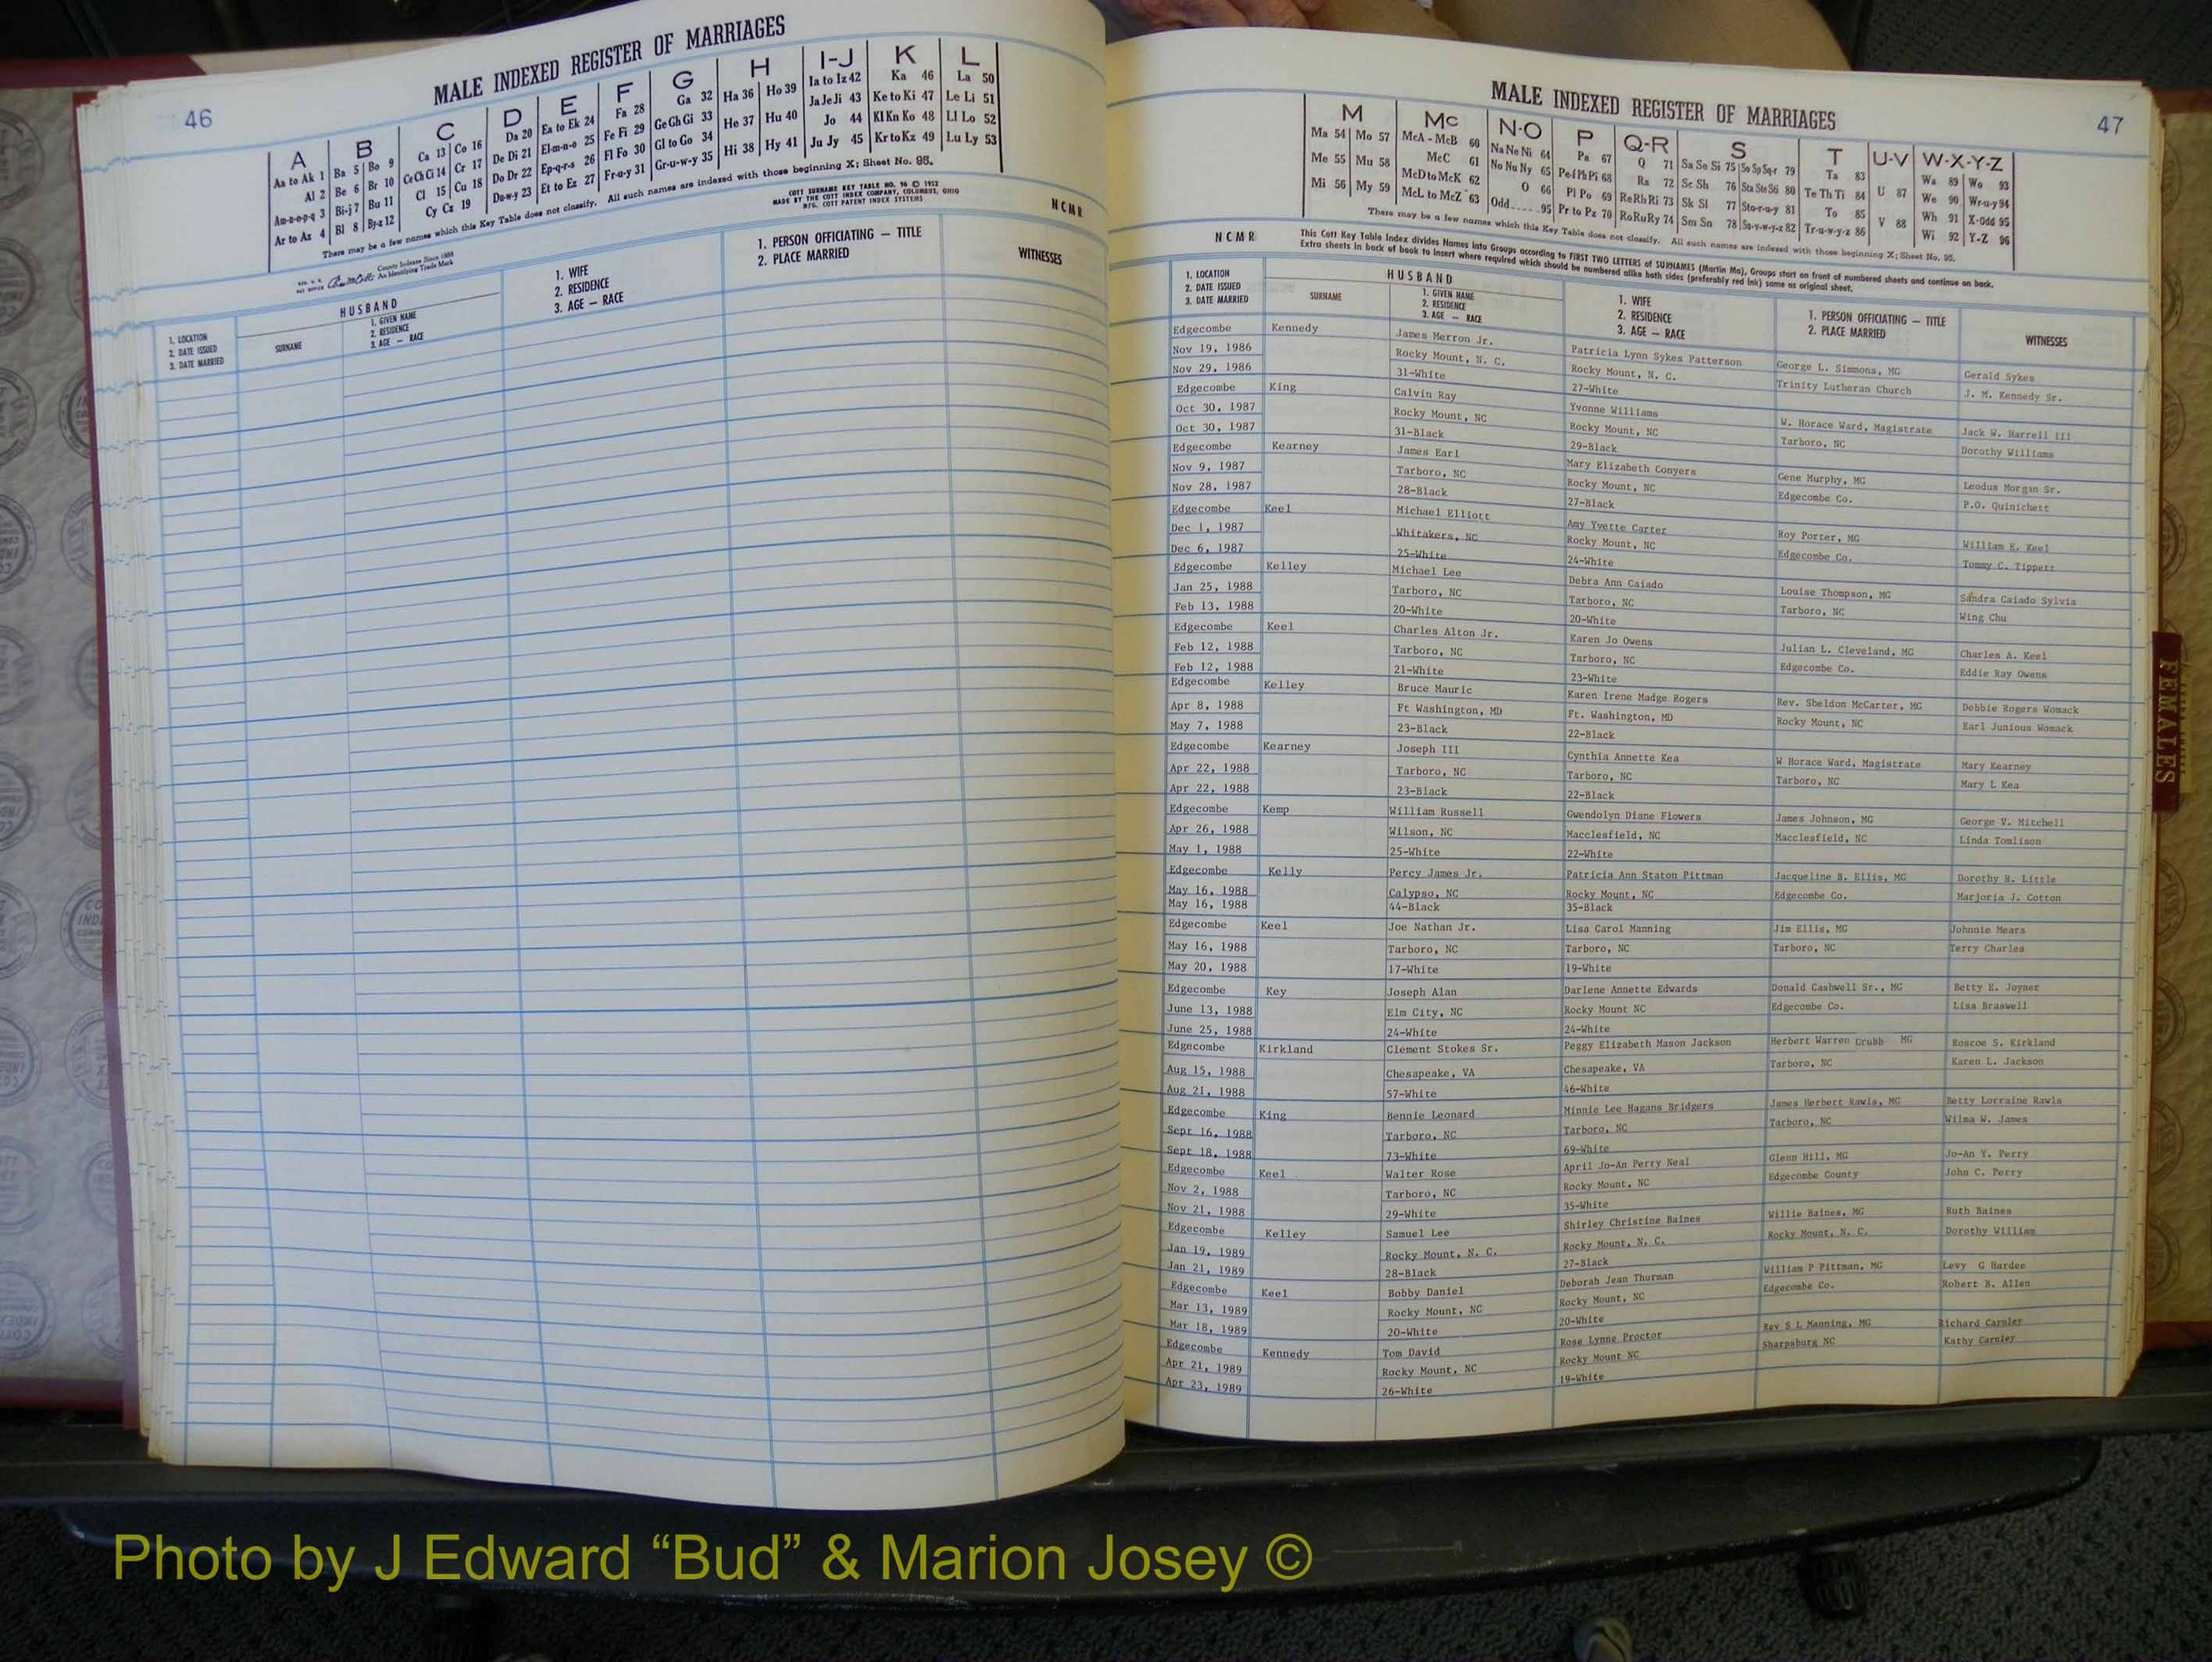 46
MALE INDEXED REGISTER OF MARRIAGES
A B C D E F G H I-J K L
Aa to Ak 1 Ba 5 Bo 9 Ca 13 Co 16 Da 20 Ea to Ek 24 Fa 28 Ga 32 Ha 36 Ho 39 Ia to Iz 42 Ka 46 La 50
Al 2 Be 6 Br 10 Ce Ch Ci 14 Cr 17 De Di 21 El-m-n-o 25 Fe Fi 29 Ge Gh Gi 33 He 37 Hu 40 Ja Je Ji 43 Ke to Ki 47 Le Li 51
Am-n-o-p-q 3 Bi-j 7 Bu 11 Cl 15 Cu 18 Do Dr 22 Ep-q-r-s 26 Fl Fo 30 Gl to Go 34 Hi 38 Hy 41 Jo 44 Kl Kn Ko 48 Ll Lo 52
Ar to Az 4 Bl 8 By-z 12 Cy Cz 19 Du-w-y 23 Et to Ez 27 Fr-u-y 31 Gr-u-w-y 35 Ju Jy 45 Kr to Kz 49 Lu Ly 53
There may be a few names which this Key Table does not classify. All such names are indexed with those beginning X; Sheet No. 95.
County Indexes Since 1888
An Identifying Trade Mark
COTT SURNAME KEY TABLE NO. 96 © 1952
MADE BY THE COTT INDEX COMPANY, COLUMBUS, OHIO
MFG. COTT PATENT INDEX SYSTEMS
NCMR
1. LOCATION
2. DATE ISSUED
3. DATE MARRIED
HUSBAND
SURNAME
1. GIVEN NAME
2. RESIDENCE
3. AGE — RACE
1. WIFE
2. RESIDENCE
3. AGE — RACE
1. PERSON OFFICIATING — TITLE
2. PLACE MARRIED
WITNESSES
MALE INDEXED REGISTER OF MARRIAGES
47
M Mc N-O P Q-R S T U-V W-X-Y-Z
Ma 54 Mo 57 McA - McB 60 Na Ne Ni 64 Pa 67 Q 71 Sa Se Si 75 So Sp Sq-r 79 Ta 83 U 87 Wa 89 Wo 93
Me 55 Mu 58 McC 61 No Nu Ny 65 Pe-f Ph Pi 68 Ra 72 Sc Sh 76 Sta Ste Sti 80 Te Th Ti 84 V 88 We 90 Wr-u-y 94
Mi 56 My 59 McD to McK 62 O 66 Pl Po 69 Re Rh Ri 73 Sk Sl 77 Sto-r-u-y 81 To 85 Wh 91 X-Odd 95
McL to McZ 63 Odd 95 Pr to Pz 70 Ro Ru Ry 74 Sm Sn 78 Su-v-w-y-z 82 Tr-u-w-y-z 86 Wi 92 Y-Z 96
There may be a few names which this Key Table does not classify. All such names are indexed with those beginning X; Sheet No. 95.
NCMR
This Cott Key Table Index divides Names into Groups according to FIRST TWO LETTERS of SURNAMES (Martin Ma), Groups start on front of numbered sheets and continue on back.
Extra sheets in back of book to insert where required which should be numbered alike both sides (preferably red ink) same as original sheet.
1. LOCATION
2. DATE ISSUED
3. DATE MARRIED
HUSBAND
SURNAME
1. GIVEN NAME
2. RESIDENCE
3. AGE — RACE
1. WIFE
2. RESIDENCE
3. AGE — RACE
1. PERSON OFFICIATING — TITLE
2. PLACE MARRIED
WITNESSES
Edgecombe Kennedy James Merron Jr. Patricia Lynn Sykes Patterson George L. Simmons, MG Gerald Sykes
Nov 19, 1986 Rocky Mount, N. C. Rocky Mount, N. C. Trinity Lutheran Church J. M. Kennedy Sr.
Nov 29, 1986 31-White 27-White
Edgecombe King Calvin Ray Yvonne Williams W. Horace Ward, Magistrate Jack W. Harrell III
Oct 30, 1987 Rocky Mount, NC Rocky Mount, NC Tarboro, NC Dorothy Williams
Oct 30, 1987 31-Black 29-Black
Edgecombe Kearney James Earl Mary Elizabeth Conyers Gene Murphy, MG Leodus Morgan Sr.
Nov 9, 1987 Tarboro, NC Rocky Mount, NC Edgecombe Co. P.O. Quinichett
Nov 28, 1987 28-Black 27-Black
Edgecombe Keel Michael Elliott Amy Yvette Carter Roy Porter, MG William E. Keel
Dec 1, 1987 Whitakers, NC Rocky Mount, NC Edgecombe Co. Tommy C. Tippett
Dec 6, 1987 25-White 24-White
Edgecombe Kelley Michael Lee Debra Ann Caiado Louise Thompson, MG Sandra Caiado Sylvia
Jan 25, 1988 Tarboro, NC Tarboro, NC Tarboro, NC Wing Chu
Feb 13, 1988 20-White 20-White
Edgecombe Keel Charles Alton Jr. Karen Jo Owens Julian L. Cleveland, MG Charles A. Keel
Feb 12, 1988 Tarboro, NC Tarboro, NC Edgecombe Co. Eddie Ray Owens
Feb 12, 1988 21-White 23-White
Edgecombe Kelley Bruce Mauric Karen Irene Madge Rogers Rev. Sheldon McCarter, MG Debbie Rogers Womack
Apr 8, 1988 Ft Washington, MD Ft. Washington, MD Rocky Mount, NC Earl Junious Womack
May 7, 1988 23-Black 22-Black
Edgecombe Kearney Joseph III Cynthia Annette Kea W Horace Ward, Magistrate Mary Kearney
Apr 22, 1988 Tarboro, NC Tarboro, NC Tarboro, NC Mary L Kea
Apr 22, 1988 23-Black 22-Black
Edgecombe Kemp William Russell Gwendolyn Diane Flowers James Johnson, MG George V. Mitchell
Apr 26, 1988 Wilson, NC Macclesfield, NC Macclesfield, NC Linda Tomlison
May 1, 1988 25-White 22-White
Edgecombe Kelly Percy James Jr. Patricia Ann Staton Pittman Jacqueline B. Ellis, MG Dorothy R. Little
May 16, 1988 Calypso, NC Rocky Mount, NC Edgecombe Co. Marjoria J. Cotton
May 16, 1988 44-Black 35-Black
Edgecombe Keel Joe Nathan Jr. Lisa Carol Manning Jim Ellis, MG Johnnie Mears
May 16, 1988 Tarboro, NC Tarboro, NC Tarboro, NC Terry Charles
May 20, 1988 17-White 19-White
Edgecombe Key Joseph Alan Darlene Annette Edwards Donald Cashwell Sr., MG Betty E. Joyner
June 13, 1988 Elm City, NC Rocky Mount NC Edgecombe Co. Lisa Braswell
June 25, 1988 24-White 24-White
Edgecombe Kirkland Clement Stokes Sr. Peggy Elizabeth Mason Jackson Herbert Warren Grubb MG Roscoe S. Kirkland
Aug 15, 1988 Chesapeake, VA Chesapeake, VA Tarboro, NC Karen L. Jackson
Aug 21, 1988 57-White 46-White
Edgecombe King Bennie Leonard Minnie Lee Hagans Bridgers James Herbert Rawls, MG Betty Lorraine Rawls
Sept 16, 1988 Tarboro, NC Tarboro, NC Tarboro, NC Wilma W. James
Sept 18, 1988 73-White 69-White
Edgecombe Keel Walter Rose April Jo-An Perry Neal Glenn Hill, MG Jo-An Y. Perry
Nov 2, 1988 Tarboro, NC Rocky Mount, NC Edgecombe County John C. Perry
Nov 21, 1988 29-White 35-White
Edgecombe Kelley Samuel Lee Shirley Christine Baines Willie Baines, MG Ruth Baines
Jan 19, 1989 Rocky Mount, N. C. Rocky Mount, N. C. Rocky Mount, N. C. Dorothy William
Jan 21, 1989 28-Black 27-Black
Edgecombe Keel Bobby Daniel Deborah Jean Thurman William P Pittman, MG Levy G Hardee
Mar 13, 1989 Rocky Mount, NC Rocky Mount, NC Edgecombe Co. Robert B. Allen
Mar 18, 1989 20-White 20-White
Edgecombe Kennedy Tom David Rose Lynne Proctor Rev S L Manning, MG Richard Carnley
Apr 21, 1989 Rocky Mount, NC Rocky Mount NC Sharpsburg NC Kathy Carnley
Apr 23, 1989 26-White 19-White
FEMALES
Photo by J Edward “Bud” & Marion Josey ©